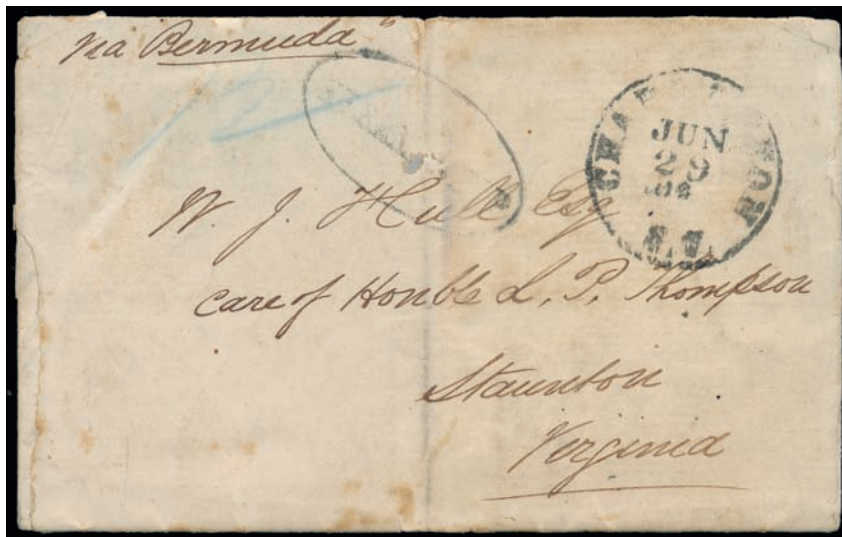 via Bermuda"
12
JUN
29
W. J. Hull Esq
care of Honble L. P. Thompson
Staunton
Virginia